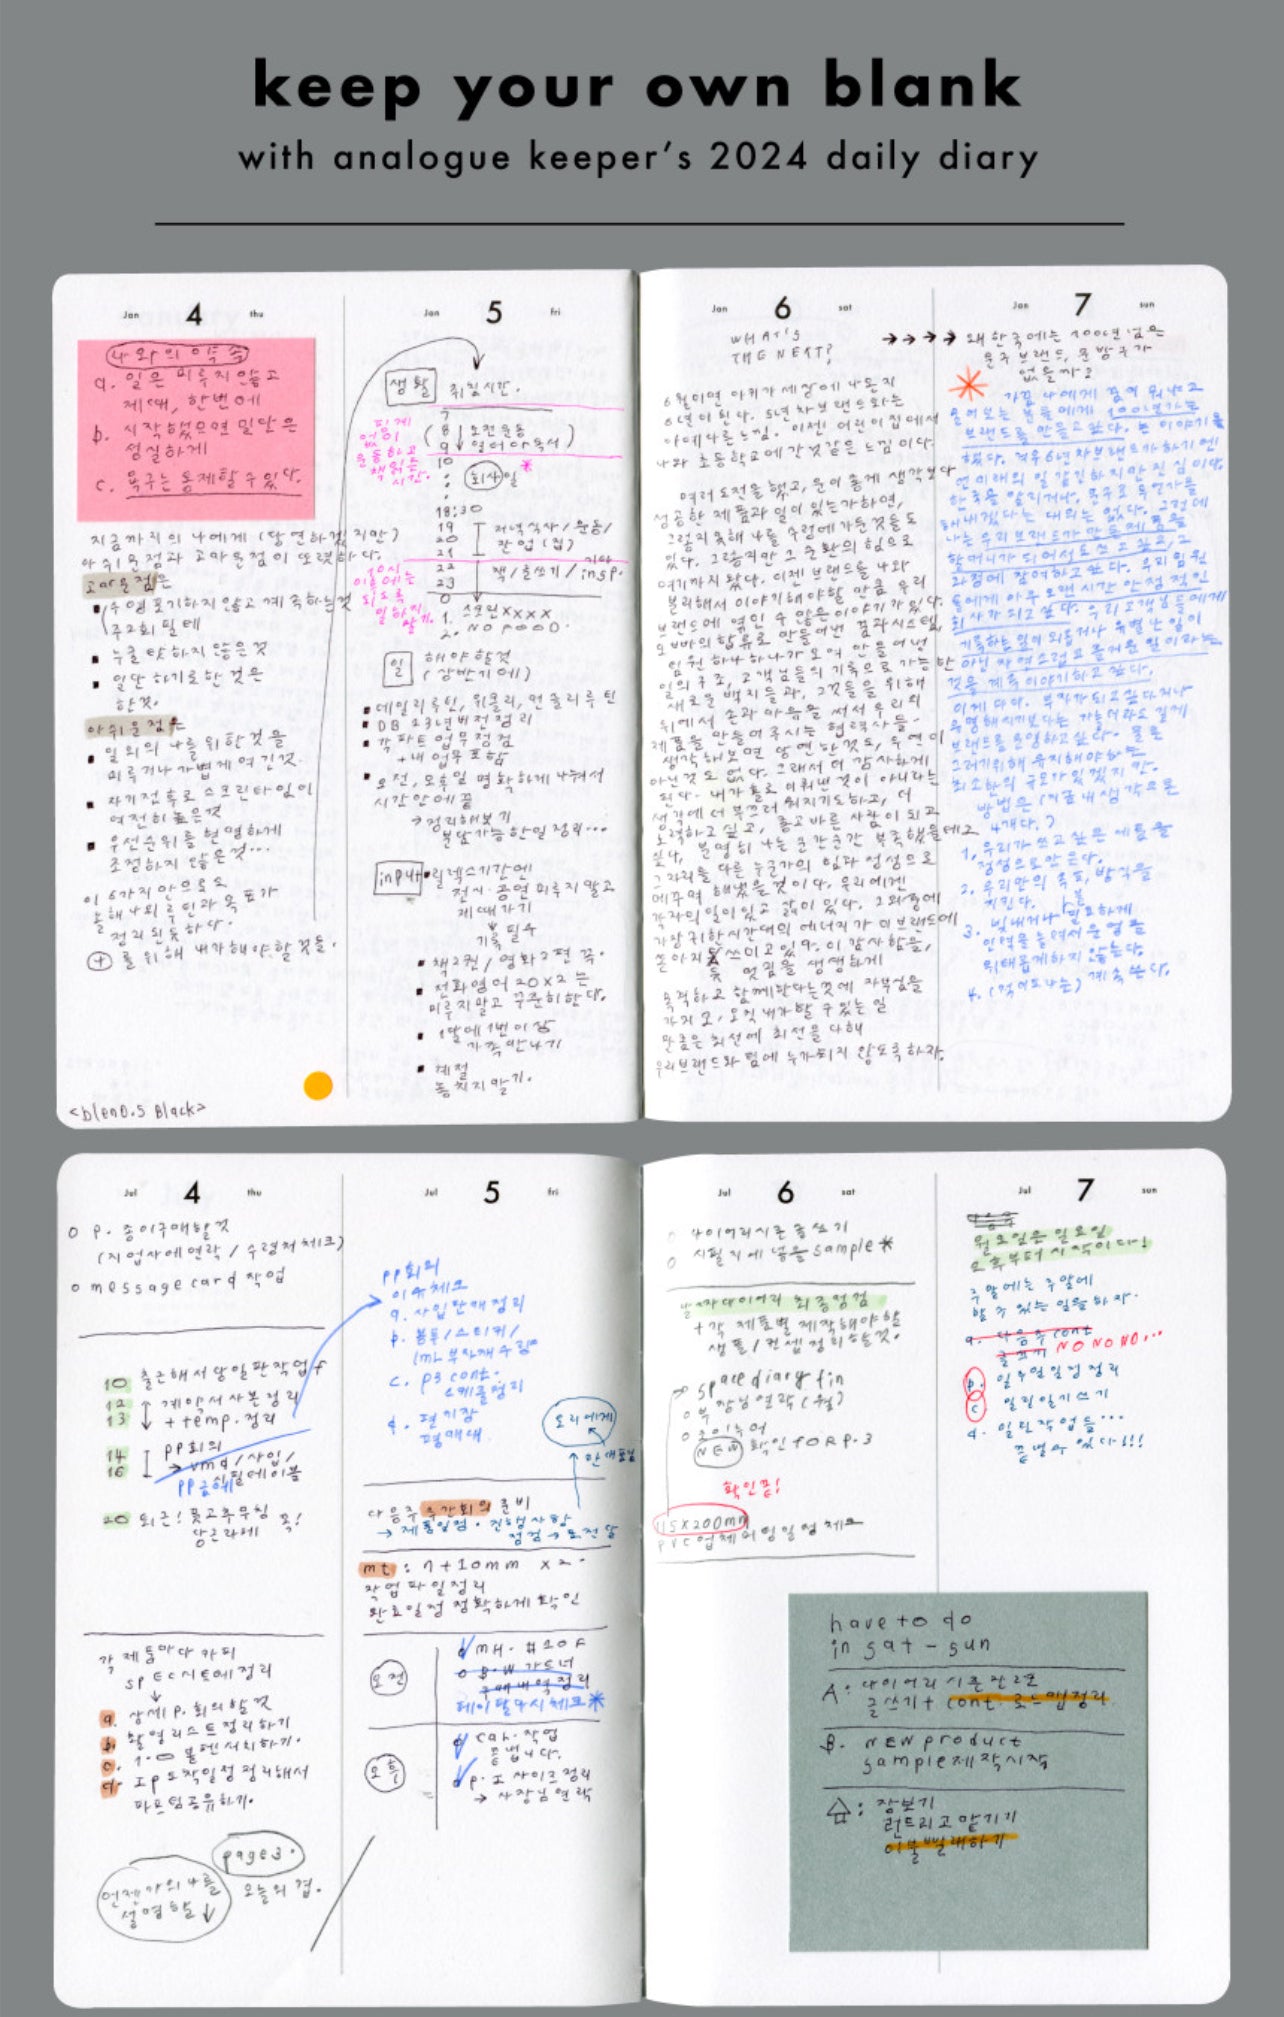 keep your own blank
with analogue keeper's 2024 daily diary
Jan 4 thu
나와의 약속
a. 일은 미루지 않고
제때, 한번에
b. 시작했으면 일단은
성실하게
c. 욕구는 통제할 수 있다.
지금까지의 나에게 (당연하겠지만)
아쉬운점과 고마운점이 또렷하다.
고마운점은
수영 포기하지 않고 계속하는것
주2회 필테
누굴 탓하지 않은것
일단 하기로 한 것은
한것.
아쉬운점은
일 외의 나를 위한 것을
미루거나 가볍게 여긴것.
자기전후로 스크린타임이
여전히 높은것
우선순위를 현명하게
조정하지 않은것...
이 6가지 안으로
올해 나의 루틴과 목표가
정리된듯하다.
+ 를 위해 내가 해야할 것들.
<blen 0.5 Black>
Jan 5 fri
생활 취침시간.
7
8 오전운동
9 영어 아독서
10
회사일
18:30
19
20
21
저녁식사/운동/
잔업(집)
22
23
책/글쓰기/insp.
0
1. 스크린 xxxx
2. NO FOOD.
핑계
없이
운동하고
책읽는
시간.
10시
이후에는
되도록
일하지
않기.
일 해야할것
(상반기에)
데일리루틴, 위클리, 먼슬리루틴
DB 23년버전정리
각파트 업무점검
+내 업무포함
오전, 오후일 명확하게 나눠서
시간안에 끝
→ 정리해보기
분담가능한일 정리...
input 릴렉스기간에
전시·공연 미루지 말고
제때가기
기록 필수
책2권/영화2편 꼭.
전화영어 20x2는
미루지말고 꾸준히한다.
1달에 1번이상
가족만나기
계절
놓치지말기.
Jan 6 sat
WHAT'S
THE NEXT?
6월이면 아키가 세상에 나온지
6년이 된다. 5년차 브랜드와는
아예다른느낌. 이젠 어린이집에서
나와 초등학교에 간것 같은 느낌이다.
여러 도전을 했고, 운이 좋게 생각보다
성공한 제품과 일이 있는가하면,
그렇지 못해 나를 수렁에 가둔것들도
있다. 그렇지만 그 순환의 힘으로
여기까지 왔다. 이젠 브랜드를 나와
분리해서 이야기해야할 만큼 우리
브랜드에 엮인 수많은 이야기가 있다.
오빠의 합류로 만들어낸 결과 시스템,
임원 하나하나가 모여 만들어낸
일의 구조, 고객님들의 기록으로 가능한
새로운 백지들과, 그것들을 위해
뒤에서 손과 마음을 써서 우리의
제품을 만들어주시는 협력사들.
생각해보면 당연한것도, 우연이
아닌것도 없다. 그래서 더 감사하게
된다. 내가 홀로 이뤄낸 것이 아니라는
생각에 더 부끄러워지기도하고, 더
노력하고 싶고, 옳고 바른 사람이 되고
싶다. 분명히 나는 순간순간 부족했을테고
그 자리를 다른 누군가의 힘과 정성으로
메꾸며 해냈을 것이다. 우리에겐
각자의 일이 있고 삶이 있다. 그 와중에
가장 귀한 시간대의 에너지가 이 브랜드에
쏟아지듯 쓰이고 있으. 이 감사함을,
멋짐을 생생하게
목격하고 함께한다는것에 자부심을
가지고, 오직 내가 할 수 있는 일
만큼은 최선에 최선을 다해
우리브랜드와 팀에 누가되지 않도록 하자.
Jan 7 sun
왜 한국에는 100년 넘은
문구 브랜드, 문방구가
없을까?
가끔 나에게 꿈이 뭐냐고
물어보는 분들에게 100년가는
브랜드를 만들고 싶다. 는 이야기를
했다. 겨우 6년차 브랜드가 하기엔
먼 미래의 일 같긴하지만 진심이다.
한국을 알리거나, 문구로 무언가를
해내겠다는 대의는 없다. 그런데
나는 우리 브랜드가 만든 제품을
할머니가 되어서도 쓰고 싶고, 그
과정에 참여하고 싶다. 우리 임원
들에게 아주 오랜시간 안정적인
회사가 되고 싶다. 우리 고객님들에게
기록하는 일이 외롭거나 유별난 일이
아닌 자연스럽고 즐거운 일이라는
것을 계속 이야기하고 싶다.
이제 다야. 부자가 되고 싶다거나
유명해지기보다는 가늘더라도 길게
브랜드를 운영하고싶다. 물론
그러기위해 유지해야하는
최소한의 규모가 있겠지만.
방법은 (지금 내 생각으론
4개다.)
1. 우리가 쓰고 싶은 제품을
정성으로 만든다.
2. 우리만의 속도, 방식을
지킨다.
3. 빚내거나 불필요하게
인력을 늘여서 운영을
위태롭게하지 않는다.
4. (적어도 나는) 계속 쓴다.
Jul 4 thu
o p. 종이구매할것
(지업사에 연락/수령처 체크)
o message card 작업
10 출근해서 당일판작업
12 계약서 사본정리
13 + temp. 정리
14 pp회의
16 → vmd/사입/
시필테이블
pp교체
20 퇴근! 풋고추무침 꼭!
당근라페
각 제품마다 카피
SPEC시트에 정리
a. 상세p. 회의할 것
b. 촬영리스트정리하기
c. 1.0 볼펜서치하기.
d. Ip 도착일정 정리해서
파프팀공유하기.
page3.
언젠가의 나를
설명할
오늘의 겹.
Jul 5 fri
pp회의
이슈체크
a. 사입판매정리
b. 봉투/스티커/
ml 부자재수량
c. p3 cont.
스케줄정리
d. 편지장
평매대.
도리에게
다음주 주간회의 준비
→ 제품일정·진행사항
점검 → 도전달
mt: 7+10mm x2.
작업파일정리
완료일정 정확하게 확인
오전
MH. #10F
B.W 가드너
구매내역정리
페이팔다시체크
오후
car. 작업
끝냅니다.
p. 표 사이즈정리
→ 사장님 연락
Jul 6 sat
o 다이어리시즌글쓰기
o 시필지에 넣을 sample *
날짜다이어리 최종점검
+각 제품별 제작해야할
샘플/컨셉정리할것.
space diary fin
o 부장님연락(월)
NEW 확인 FOR P.3
확인끝!
115x200mm
PVC업체 미팅일정체크
Jul 7 sun
월요일은 일요일
오후부터 시작이다!
주말에는 주말에
할 수 있는 일을 하자.
a. 다음주 cont
글쓰기 NO NO NO...
b. 일주일일정정리
c. 밀린일기쓰기
d. 밀린작업들...
끝낼수 있다!!!
have to do
in sat - sun
A: 다이어리시즌관련
글쓰기 + cont. 로드맵정리
B. NEW product
sample제작시작
: 장보기
런드리고 맡기기
이불빨래하기